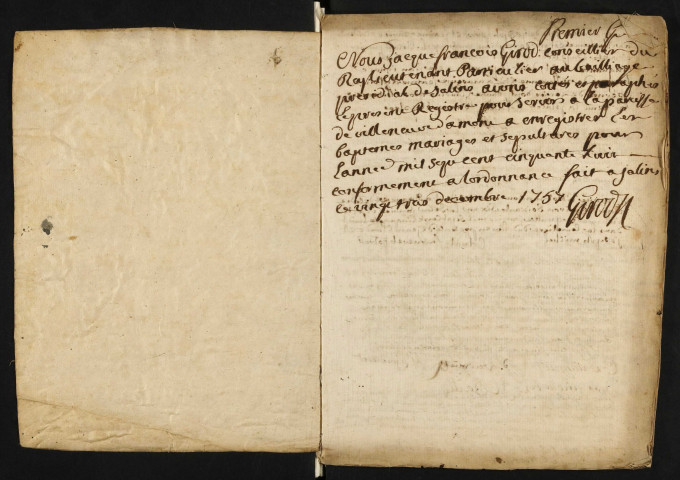 Premier G
Nous Jaque francois Girod conseillier du
Roy lieutenant Particulier au bailliage
presidial de Salins avons cottés et paraphés
le present Registre pour servir a la paroisse
de villeneuve d'amont a enregistrer les
baptemes mariages et sepultures pour
lannee mil sept cent cinquante huit
conformement a lordonnance fait a Salins
le vingt trois decembre 1757 Girod